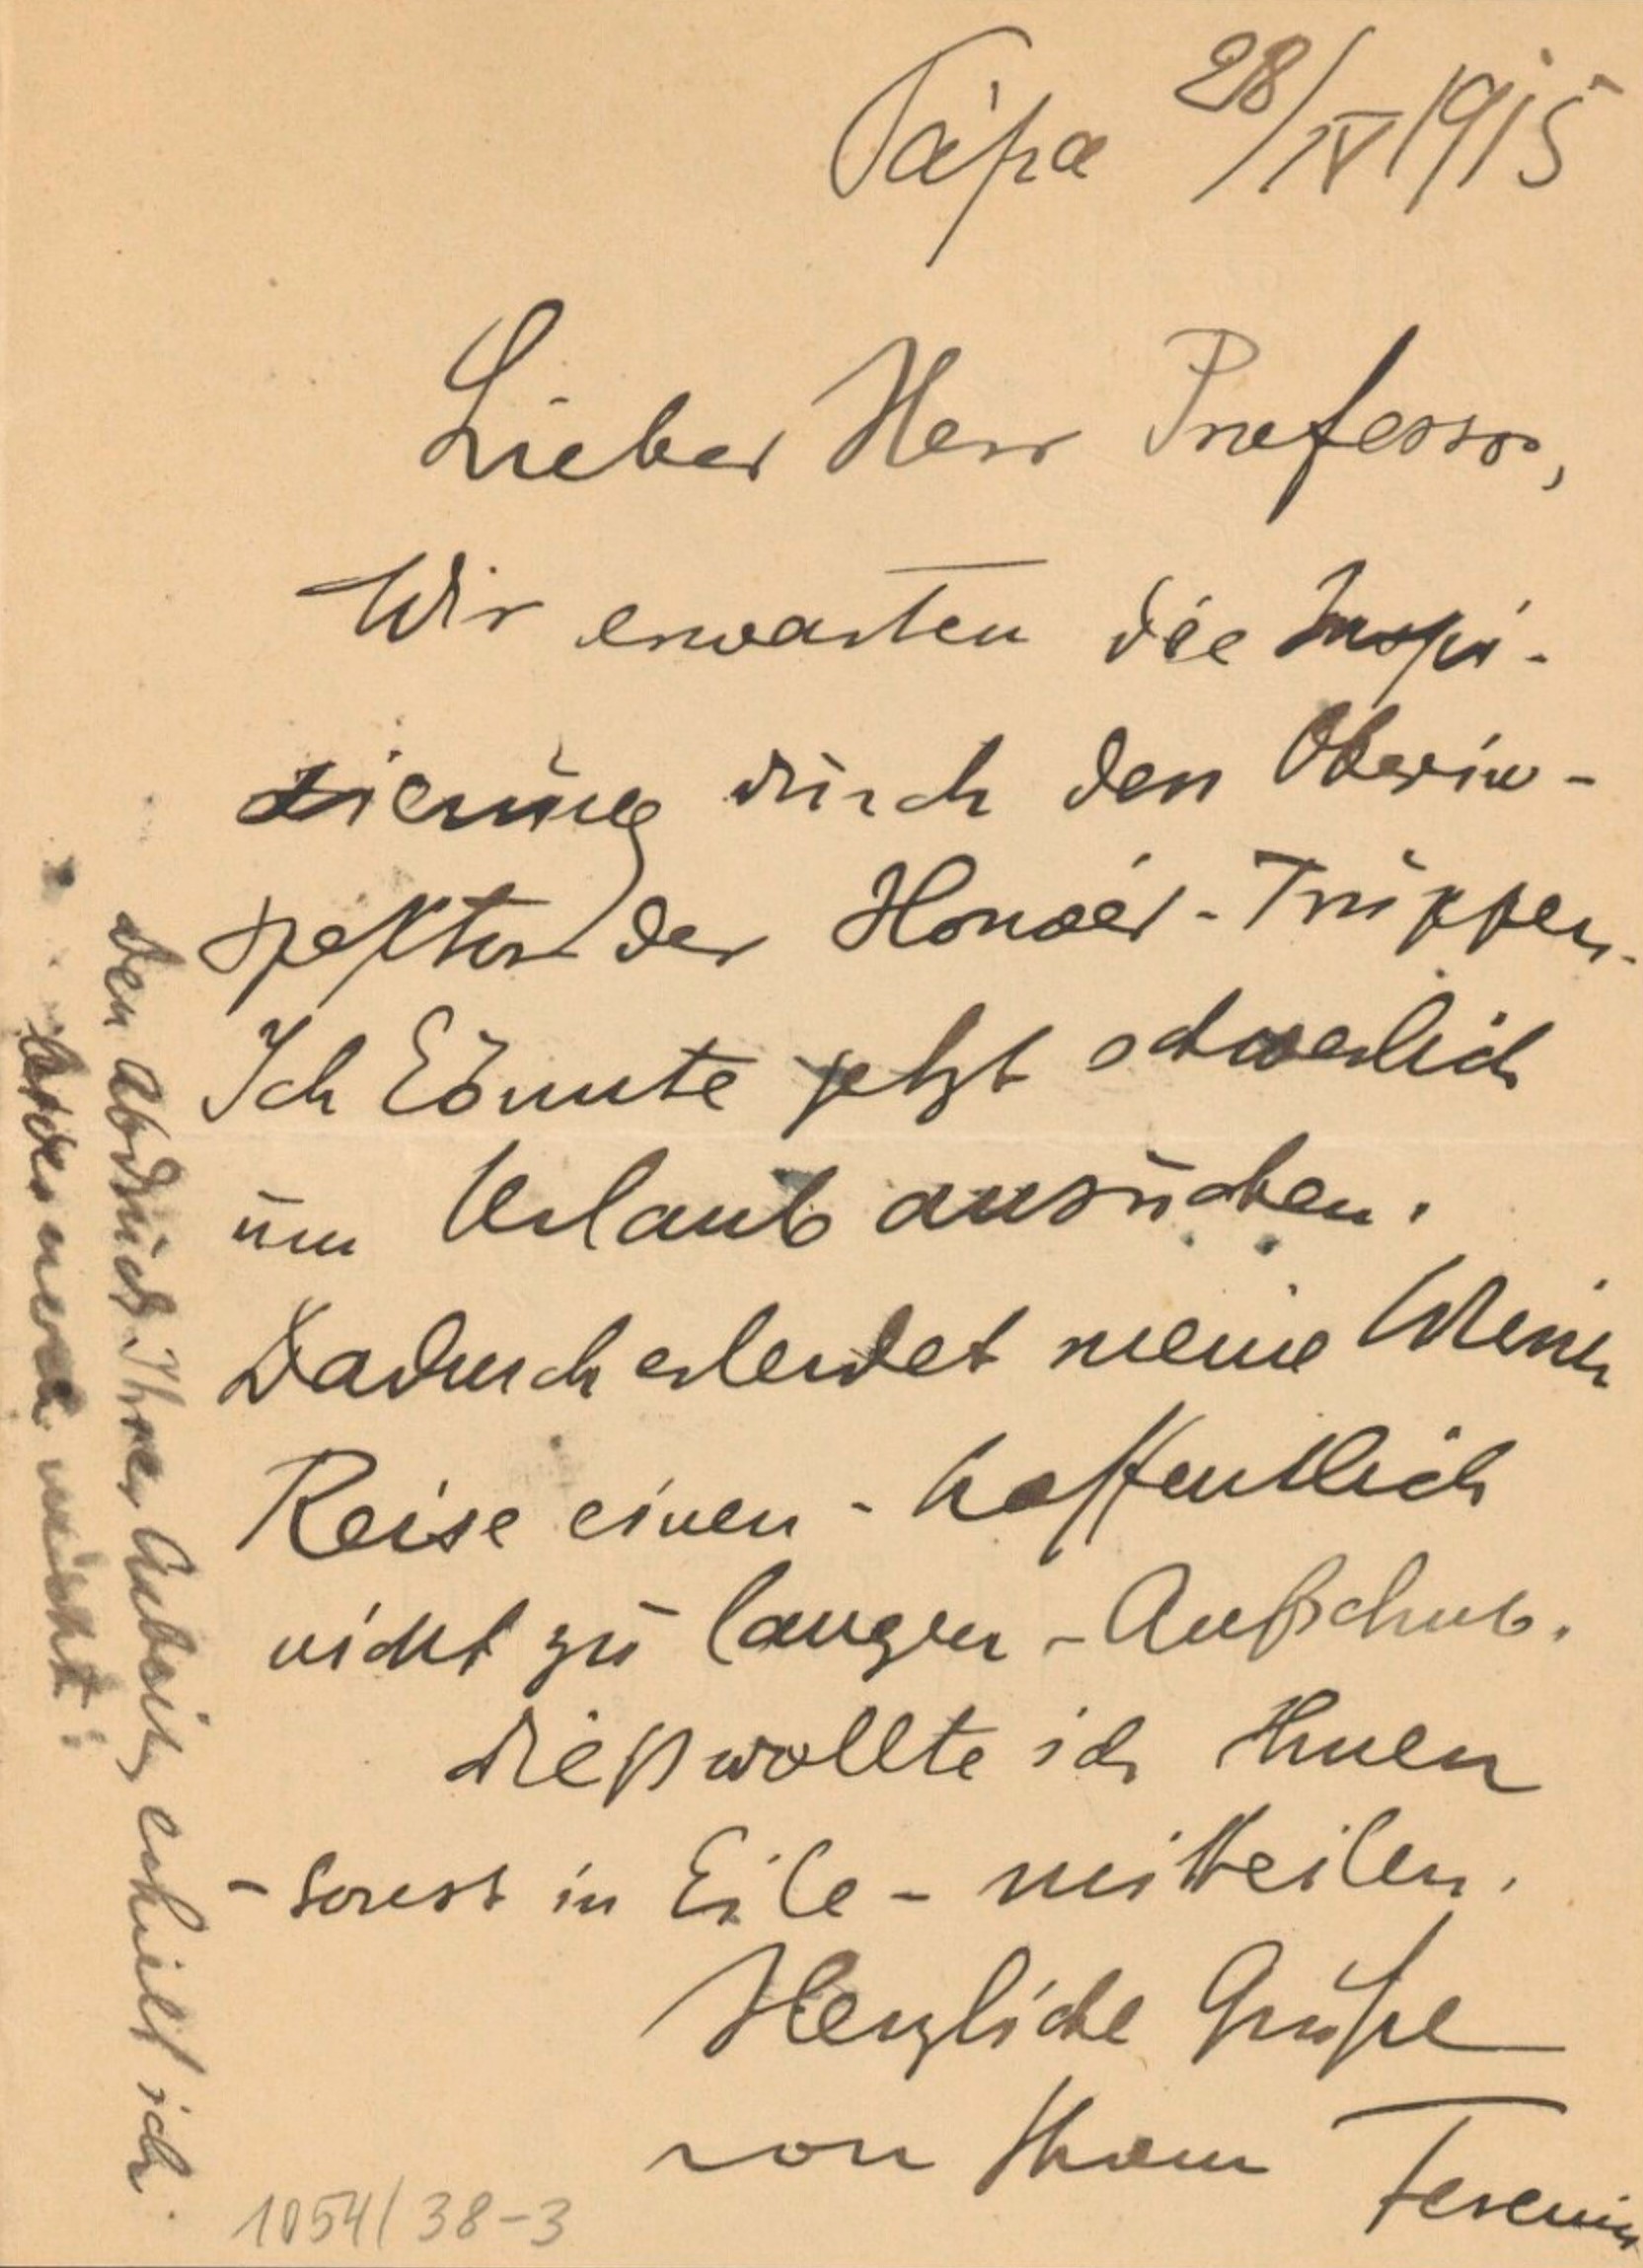 Pápa 28/IV 1915
Lieber Herr Professor,
Wir erwarten die Inspi-
zierung durch den Oberin-
spektor der Honvéd-Truppen.
Ich könnte jetzt schwerlich
um Urlaub ansuchen.
Dadurch erleidet meine Wiener
Reise einen - hoffentlich
nicht zu langen - Aufschub.
Dieß wollte ich Ihnen
- sonst in Eile - mitteilen.
Herzliche Grüße
von Ihrem Ferenczi
Den Abdruck Ihrer Arbeit erhielt ich
leider noch nicht!
1054/38-3